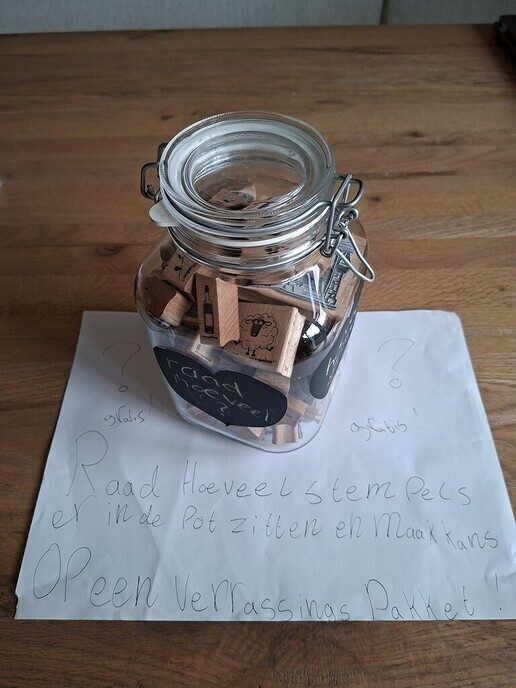 raad
hoeveel
?
? ?
gratis! gratis!
Raad Hoeveel stempels
er in de Pot zitten en Maak kans
OP een Verrassings Pakket!